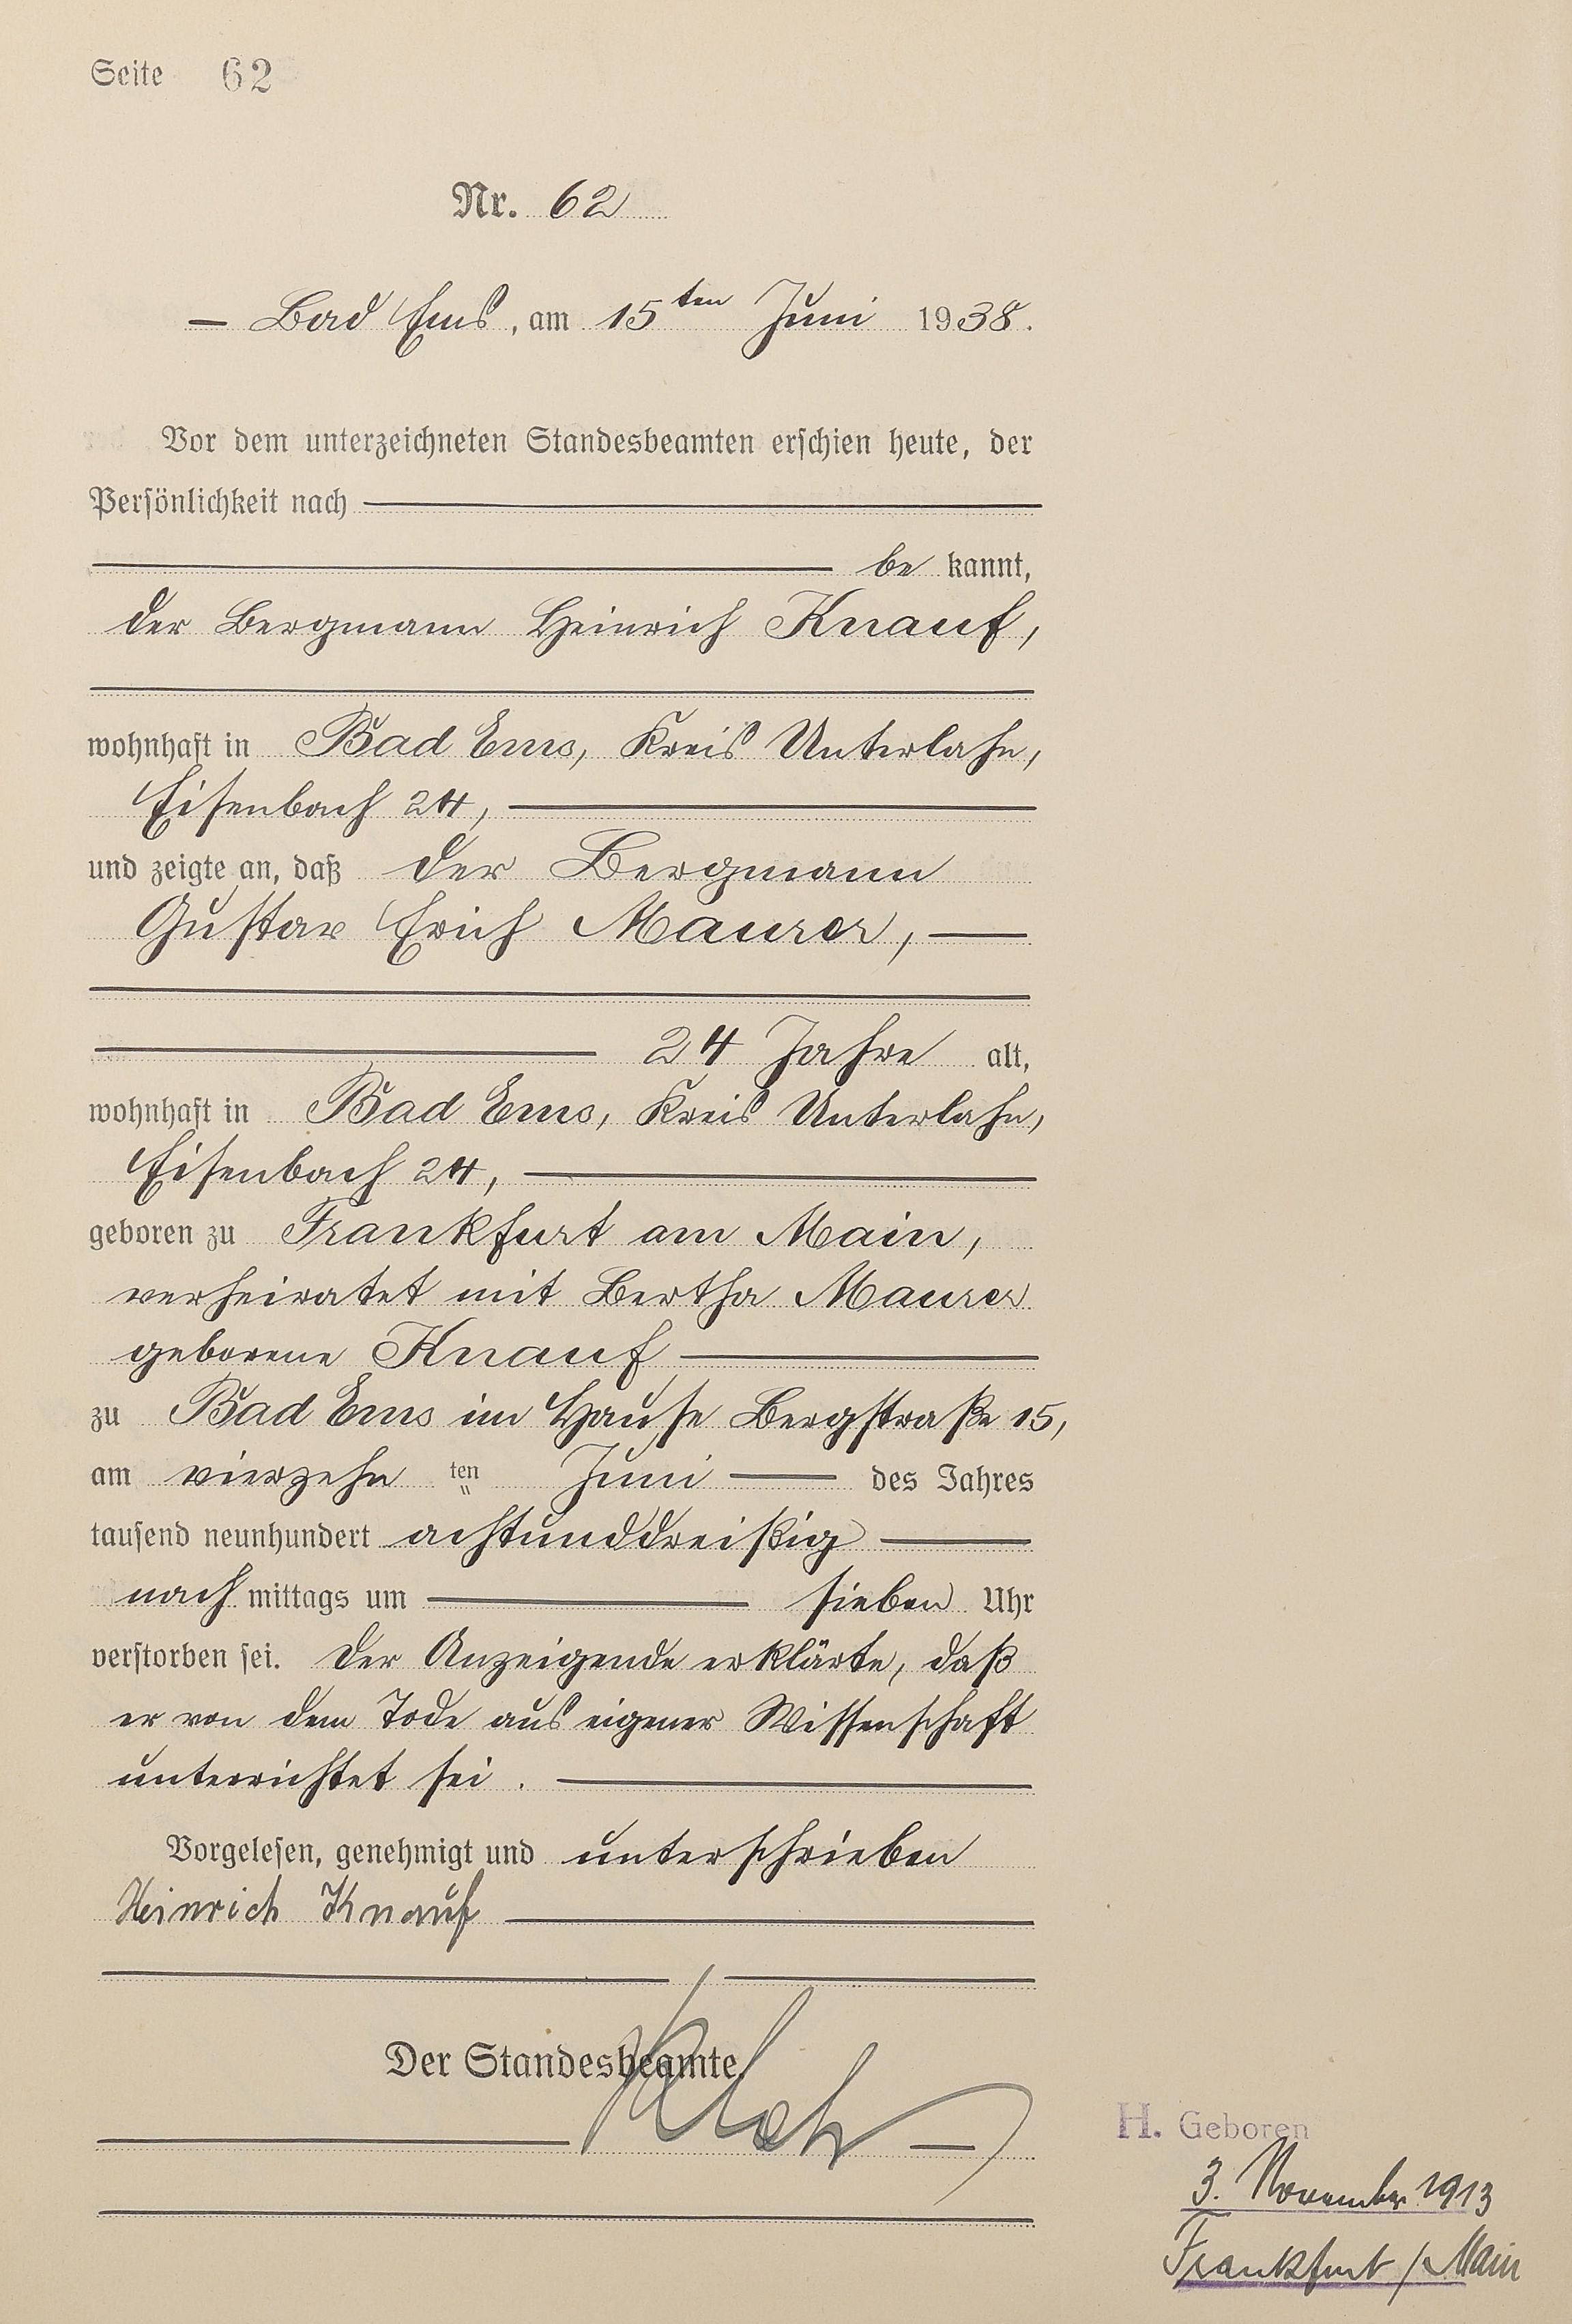 Seite 62
Nr. 62
Bad Ems, am 15ten Juni 1938.
Vor dem unterzeichneten Standesbeamten erschien heute, der
Persönlichkeit nach
be kannt,
der Bergmann Heinrich Knauf,
wohnhaft in Bad Ems, Kreis Unterlahn,
Eisenbach 24,
und zeigte an, daß der Bergmann
Gustav Erich Maurer,
24 Jahre alt,
wohnhaft in Bad Ems, Kreis Unterlahn,
Eisenbach 24,
geboren zu Frankfurt am Main,
verheiratet mit Bertha Maurer
geborene Knauf
zu Bad Ems im Hause Bergstraße 15,
am vierzehn ten Juni des Jahres
tausend neunhundert achtunddreißig
nach mittags um sieben Uhr
verstorben sei. Der Anzeigende erklärte, daß
er von dem Tode aus eigener Wissenschaft
unterrichtet sei.
Vorgelesen, genehmigt und unterschrieben
Heinrich Knauf
Der Standesbeamte.
H. Geboren
3. November 1913
Frankfurt / Main